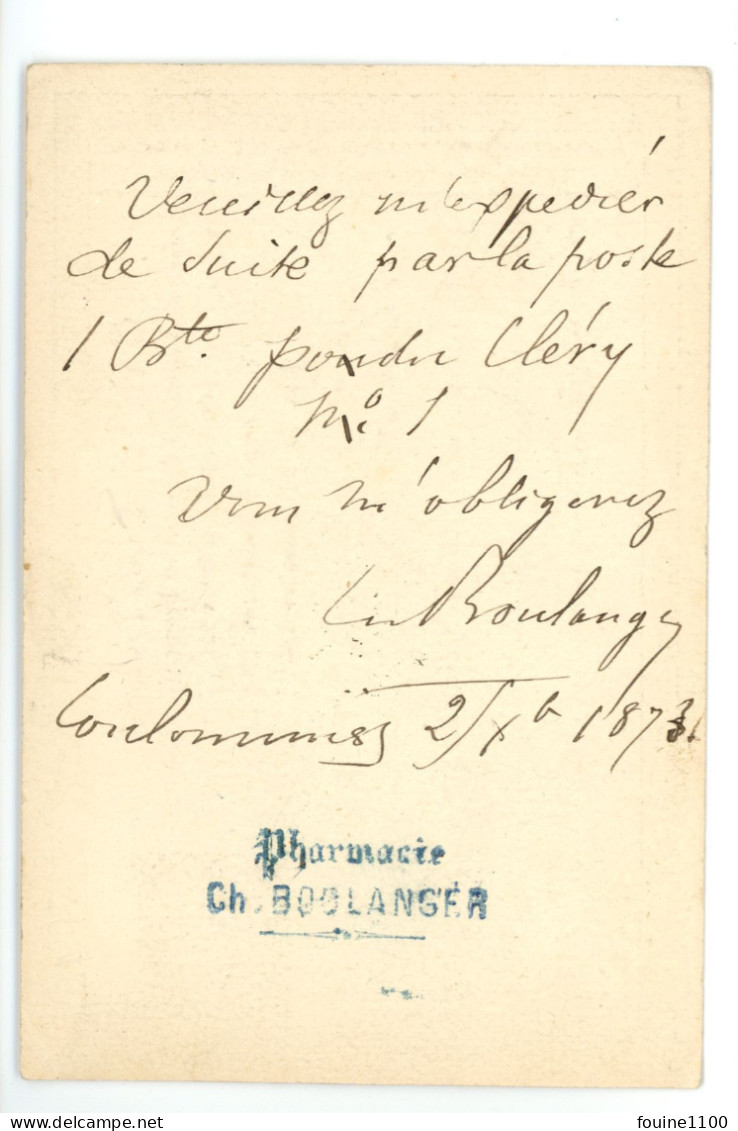 Veuillez m'expedier
de suite par la poste
1 Bte. poudre Cléry
No. 1
Vous m'obligerez
Ch Boulanger
Coulommiers 2/Xb 1873.
Pharmacie
Ch. BOULANGER
delcampe.net
fouine1100